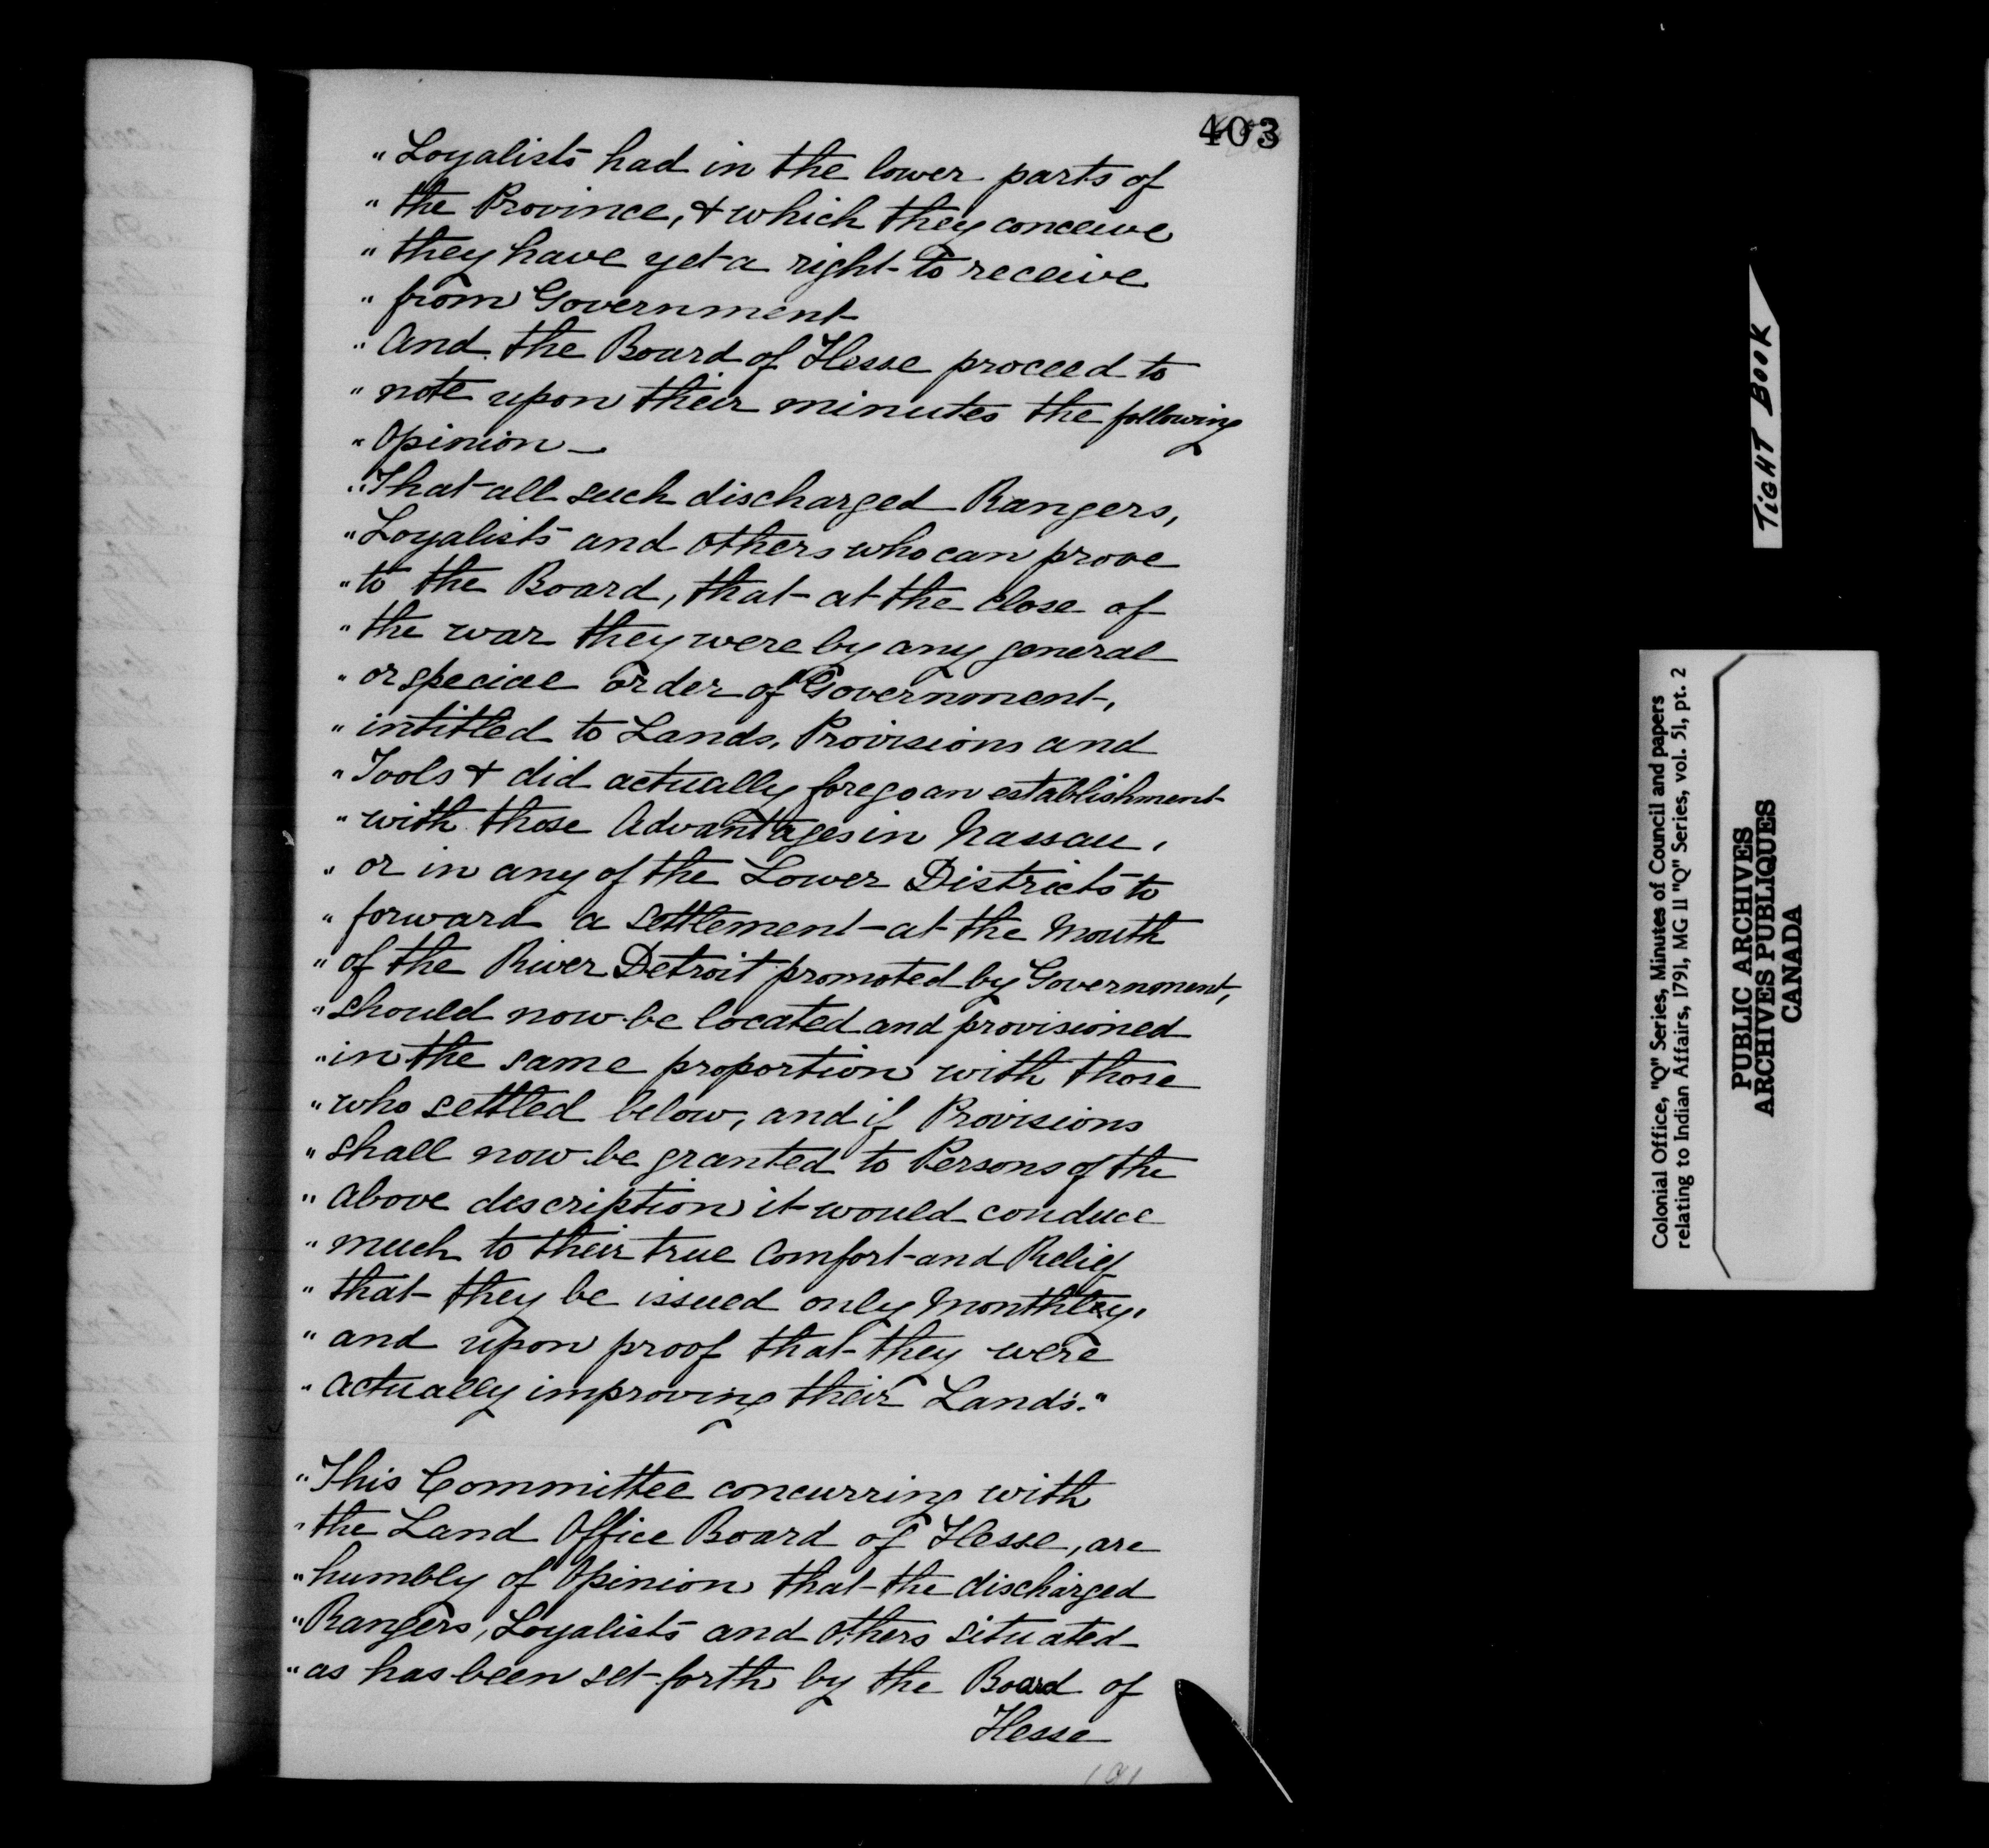 403
" Loyalists had in the lower parts of
" the Province, & which they conceive
" they have yet a right to receive
" from Government
" And the Board of Hesse proceed to
" note upon their minutes the following
" Opinion —
" That all such discharged Rangers,
" Loyalists and others who can prove
" to the Board, that at the close of
" the war they were by any general
" or special order of Government,
" intitled to Lands, Provisions and
" Tools & did actually forego an establishment
" with those Advantages in Nassau,
" or in any of the Lower Districts to
" forward a settlement at the Mouth
" of the River Detroit promoted by Government,
" should now be located and provisioned
" in the same proportion with those
" who settled below, and if Provisions
" shall now be granted to Persons of the
" above description it would conduce
" much to their true Comfort and Relief
" that they be issued only Monthly,
" and upon proof that they were
" actually improving their Lands."
" This Committee concurring with
" the Land Office Board of Hesse, are
" humbly of Opinion that the discharged
" Rangers, Loyalists and Others situated
" as has been set forth by the Board of
Hesse
191
TIGHT BOOK
Colonial Office, "Q" Series, Minutes of Council and papers
relating to Indian Affairs, 1791, MG 11 "Q" Series, vol. 51, pt. 2
PUBLIC ARCHIVES
ARCHIVES PUBLIQUES
CANADA